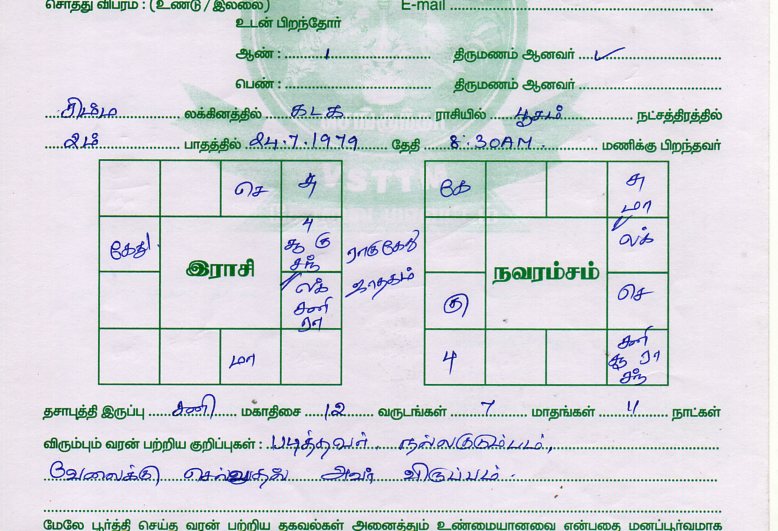 சொத்து விபரம் : (உண்டு / இல்லை) E-mail
உடன் பிறந்தோர்
ஆண் : 1 திருமணம் ஆனவர் ✓
பெண் : திருமணம் ஆனவர்
சிம்ம லக்கினத்தில் கடக ராசியில் பூசம் நட்சத்திரத்தில்
2ம் பாதத்தில் 24.7.1979 தேதி 8.30AM. மணிக்கு பிறந்தவர்
செ சு கே சு
மா
கேது 4 லக்
சூ கு ராகுகேது
சந் ஜாதகம்
இராசி நவாரம்சம்
லக் கு செ
சனி
ரா
மா 4 சனி
சூ ரா
சந்
தசாபுத்தி இருப்பு சனி மகாதிசை 12 வருடங்கள் 7 மாதங்கள் 4 நாட்கள்
விரும்பும் வரன் பற்றிய குறிப்புகள் : படித்தவர், நல்லகுடும்பம்,
வேலைக்கு செல்வது அவர் விருப்பம்.
மேலே பூர்த்தி செய்த வரன் பற்றிய தகவல்கள் அனைத்தும் உண்மையானவை என்பதை மனப்பூர்வமாக